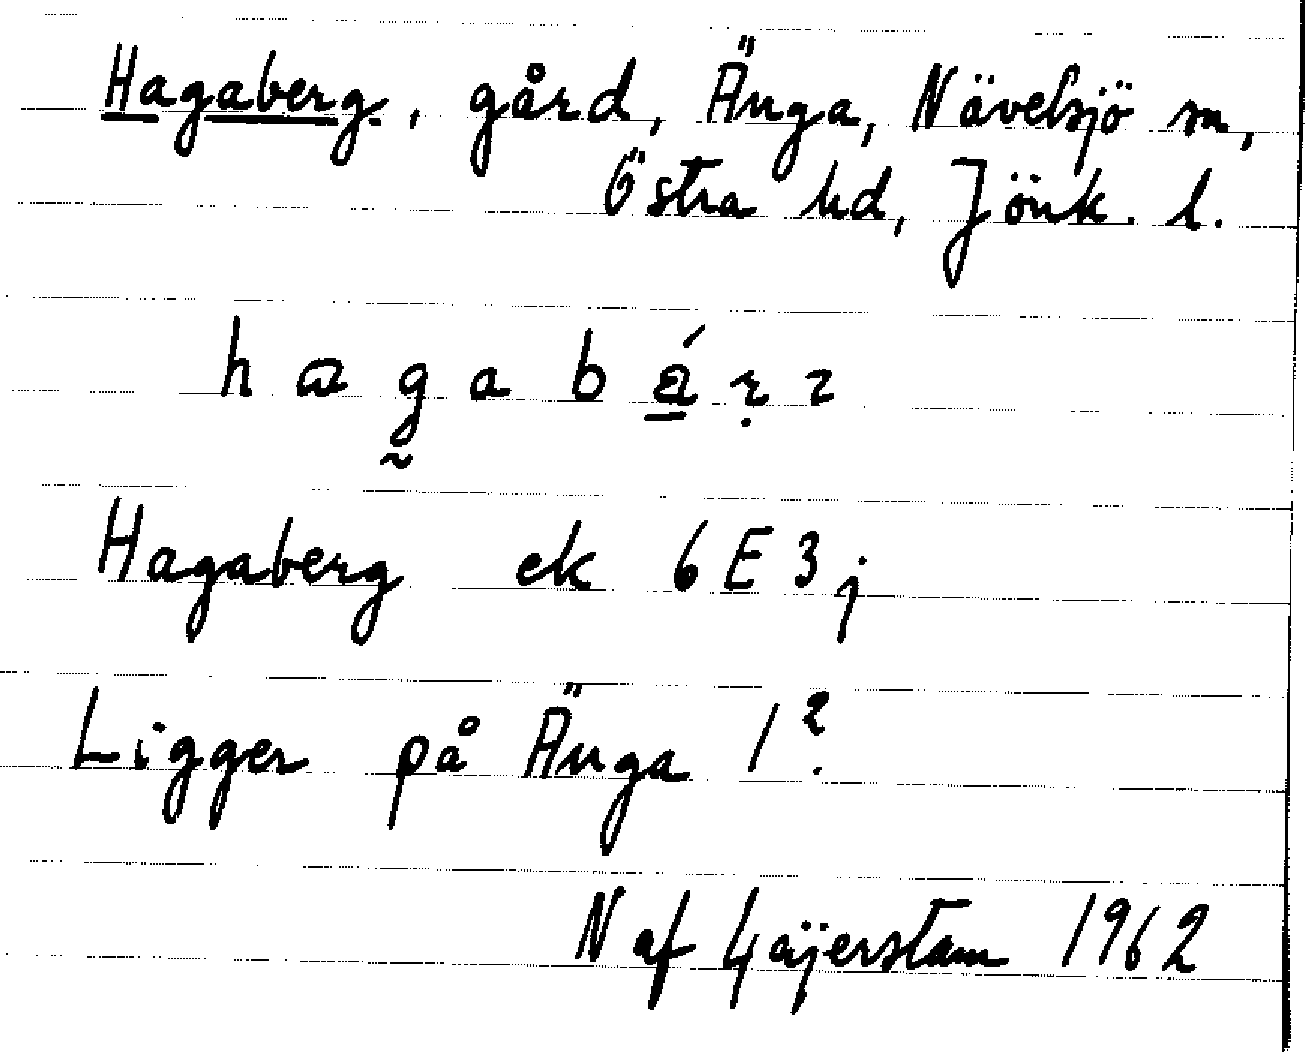 Hagaberg, gård, Änga, Nävelsjö sn,
Östra hd, Jönk. l.
Hagaberg ek 6E3j
Ligger på Änga 1?
N af Gäijerstam 1962